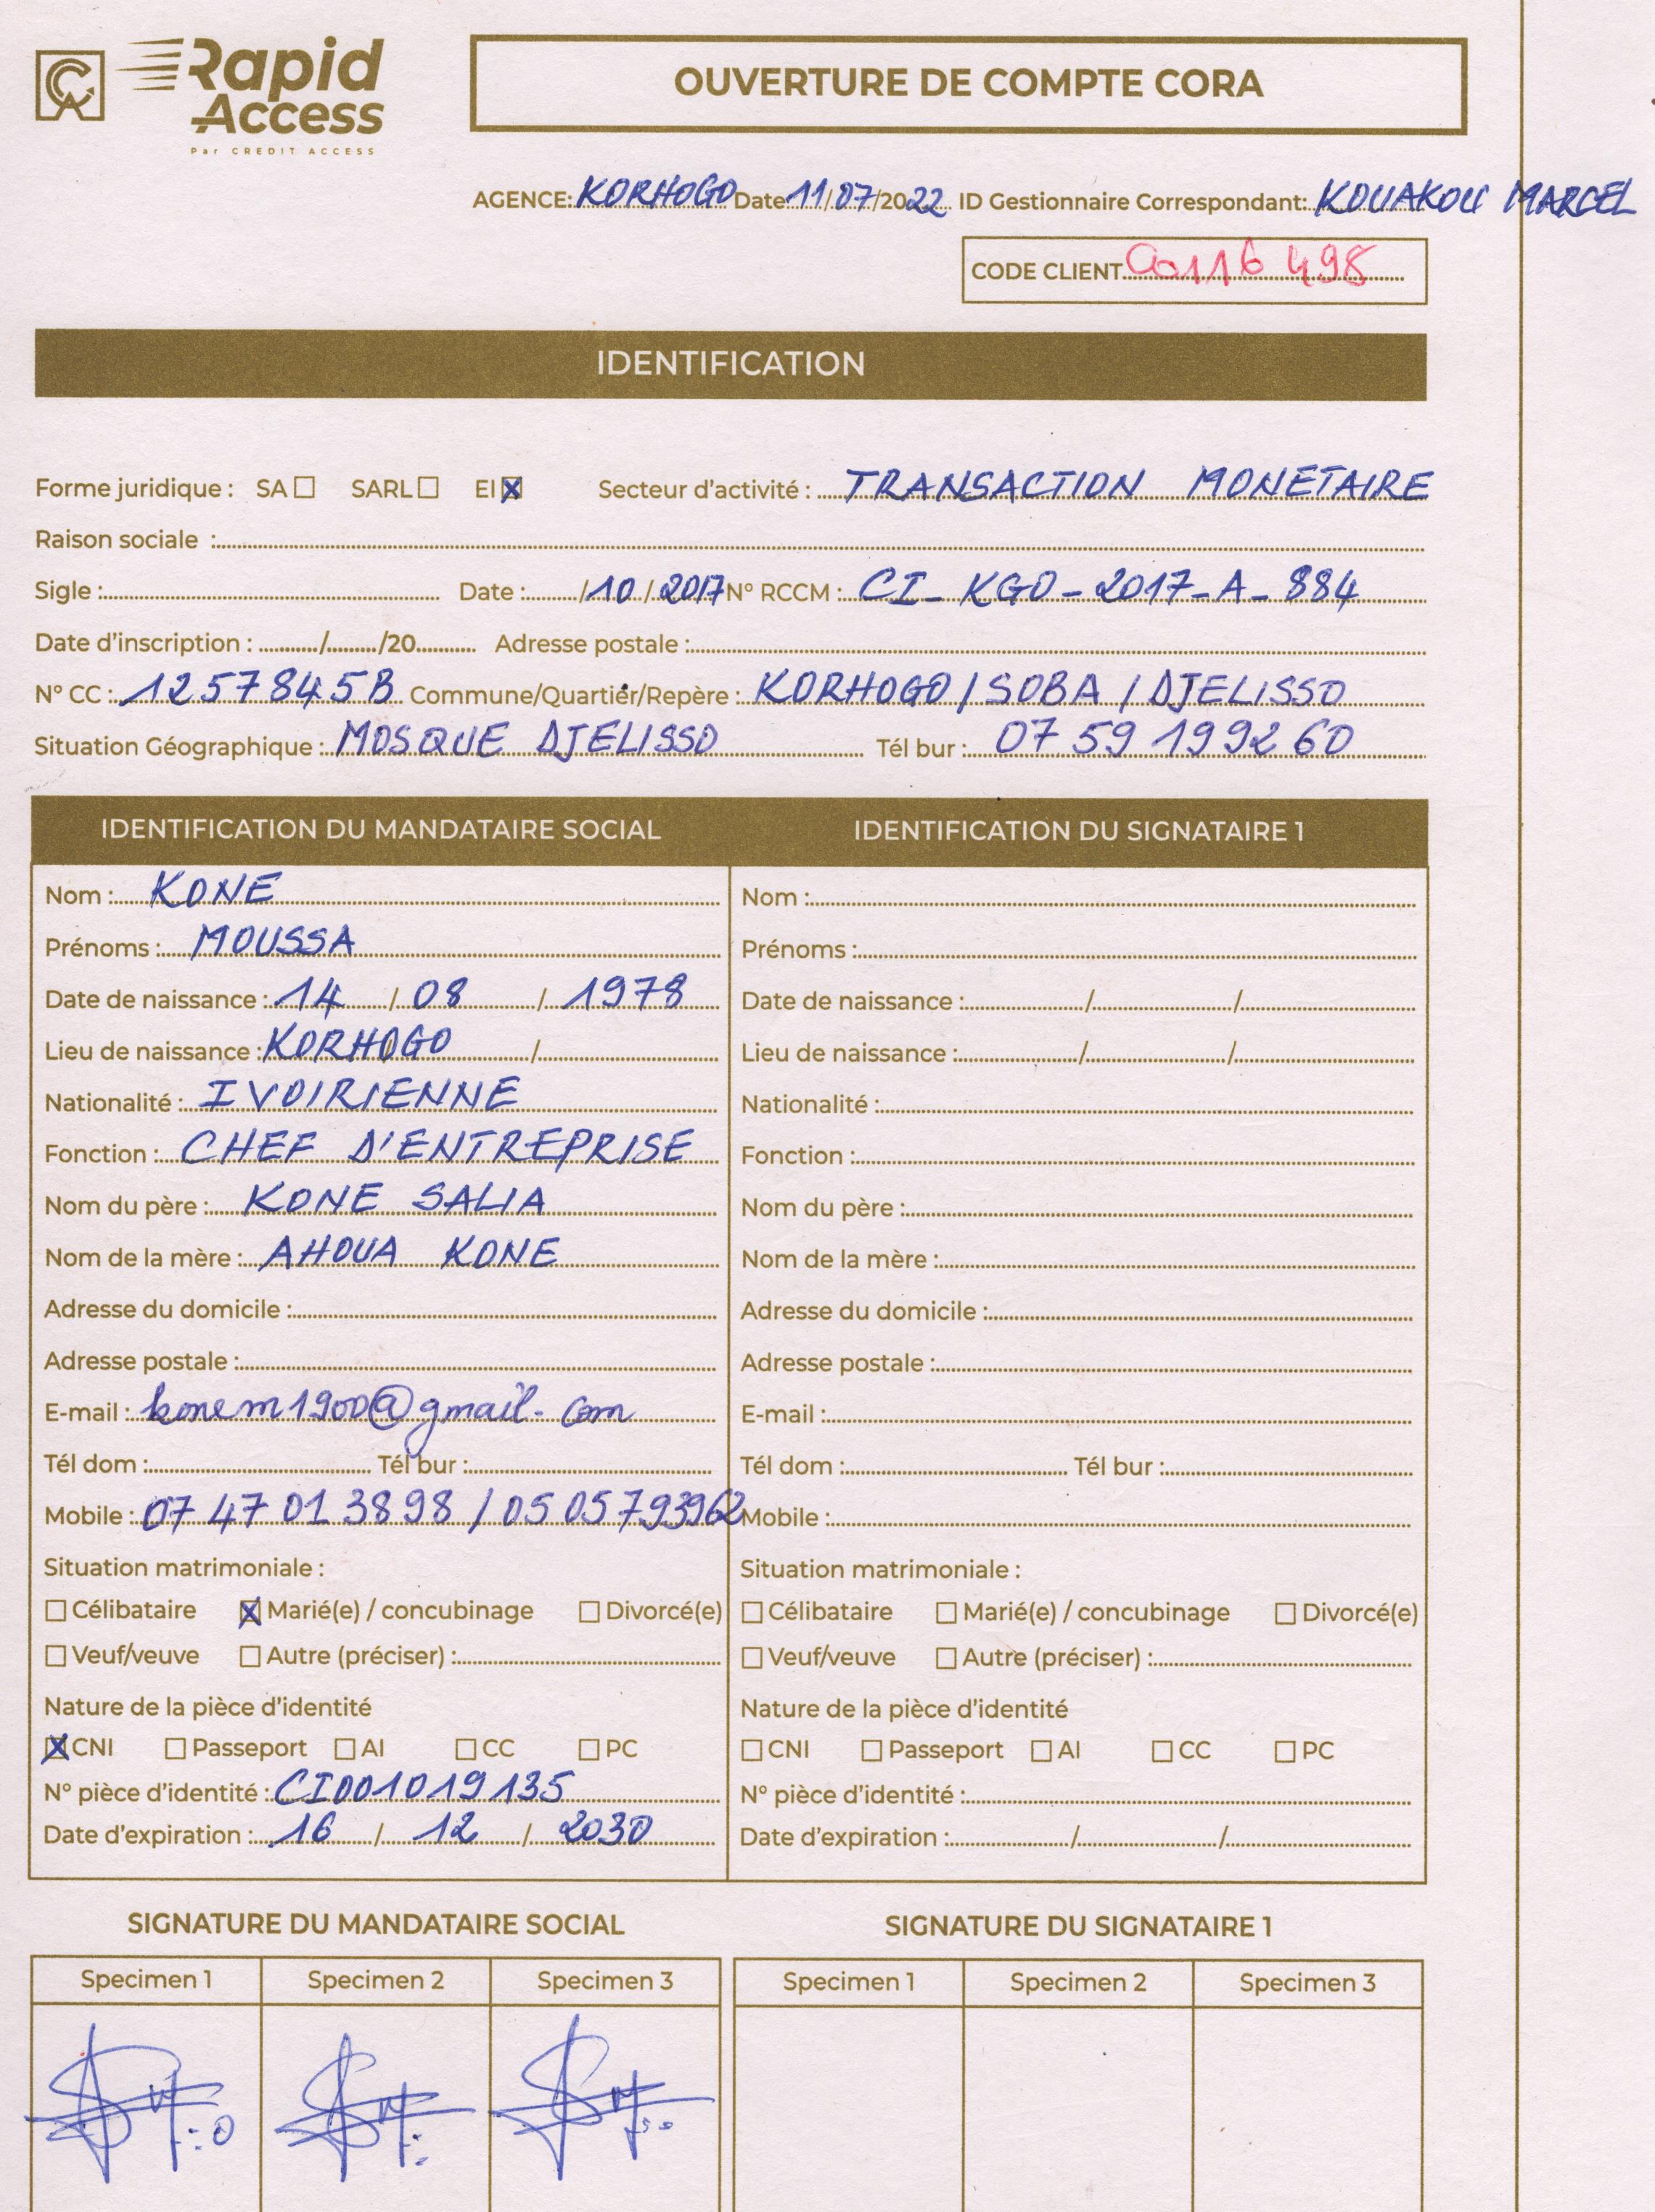 Rapid
Access
Par CREDIT ACCESS
OUVERTURE DE COMPTE CORA
AGENCE: KORHOGO Date 11/07/2022 ID Gestionnaire Correspondant: KOUAKOU MARCEL
CODE CLIENT 00116498
IDENTIFICATION
Forme juridique : SA ☐ SARL ☐ EI ☒ Secteur d'activité : TRANSACTION MONETAIRE
Raison sociale :
Sigle : Date : /10/2017 N° RCCM : CI_KGO-2017-A-884
Date d'inscription : / /20 Adresse postale :
N° CC : 1257845B Commune/Quartier/Repère : KORHOGO/SOBA/DJELISSO
Situation Géographique : MOSQUE DJELISSO Tél bur : 07 59 19 92 60
IDENTIFICATION DU MANDATAIRE SOCIAL
Nom : KONE
Prénoms : MOUSSA
Date de naissance : 14 / 08 / 1978
Lieu de naissance : KORHOGO /
Nationalité : IVOIRIENNE
Fonction : CHEF D'ENTREPRISE
Nom du père : KONE SALIA
Nom de la mère : AHOUA KONE
Adresse du domicile :
Adresse postale :
E-mail : konem1900@gmail.com
Tél dom : Tél bur :
Mobile : 07 47 01 38 98 / 05 05 793962
Situation matrimoniale :
☐ Célibataire ☒ Marié(e) / concubinage ☐ Divorcé(e)
☐ Veuf/veuve ☐ Autre (préciser) :
Nature de la pièce d'identité
☒ CNI ☐ Passeport ☐ AI ☐ CC ☐ PC
N° pièce d'identité : CI001019135
Date d'expiration : 16 / 12 / 2030
IDENTIFICATION DU SIGNATAIRE 1
Nom :
Prénoms :
Date de naissance : / /
Lieu de naissance : / /
Nationalité :
Fonction :
Nom du père :
Nom de la mère :
Adresse du domicile :
Adresse postale :
E-mail :
Tél dom : Tél bur :
Mobile :
Situation matrimoniale :
☐ Célibataire ☐ Marié(e) / concubinage ☐ Divorcé(e)
☐ Veuf/veuve ☐ Autre (préciser) :
Nature de la pièce d'identité
☐ CNI ☐ Passeport ☐ AI ☐ CC ☐ PC
N° pièce d'identité :
Date d'expiration : / /
SIGNATURE DU MANDATAIRE SOCIAL
Specimen 1 Specimen 2 Specimen 3
SIGNATURE DU SIGNATAIRE 1
Specimen 1 Specimen 2 Specimen 3